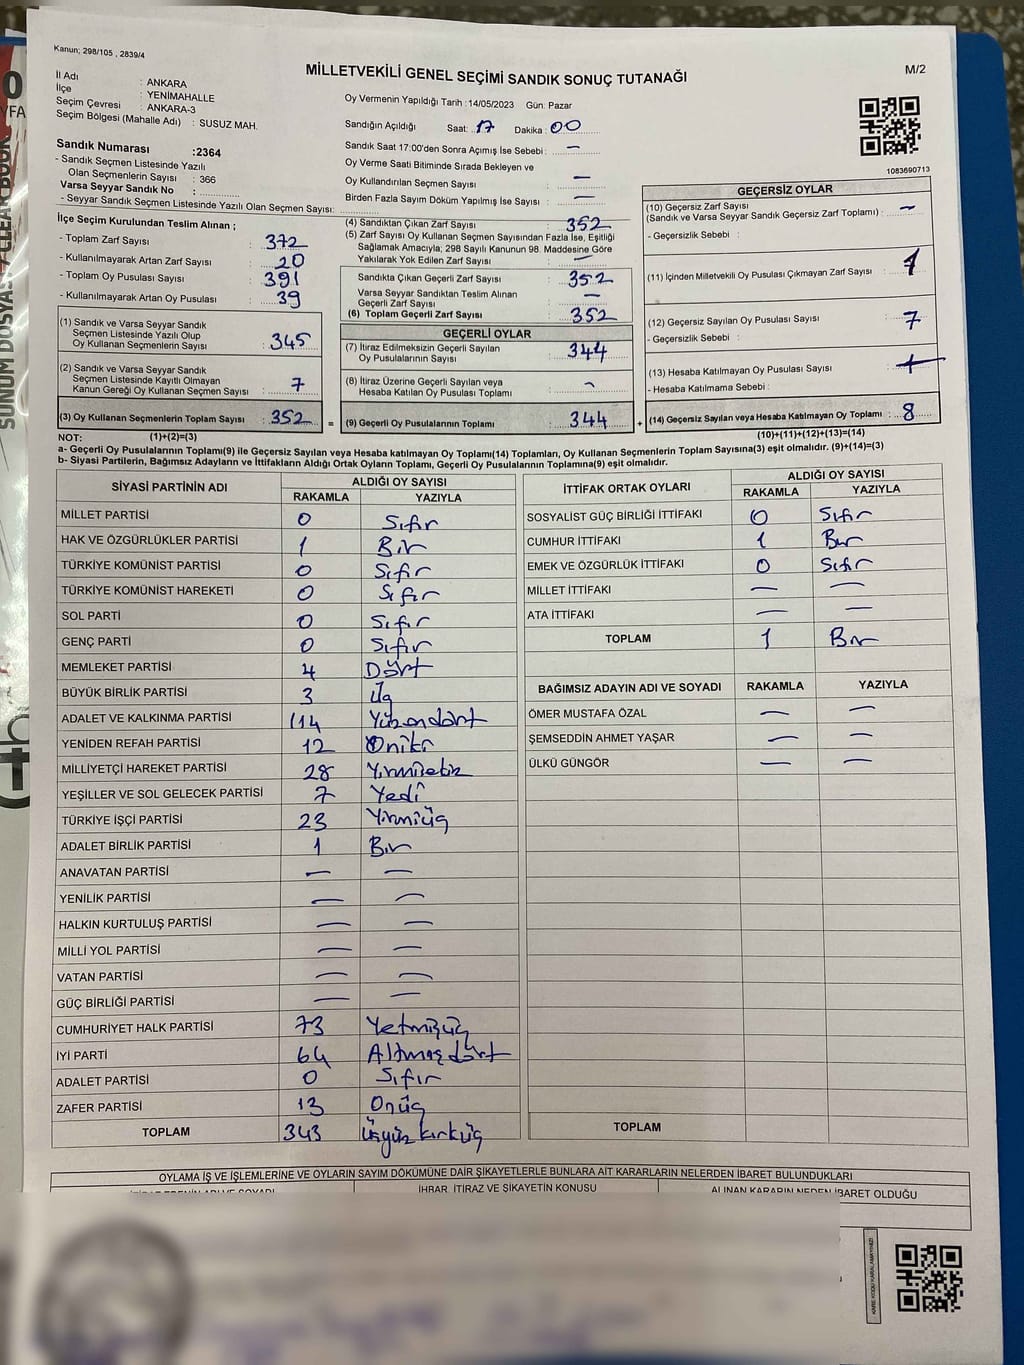 Kanun; 298/105 , 2839/4
MİLLETVEKİLİ GENEL SEÇİMİ SANDIK SONUÇ TUTANAĞI
M/2
İl Adı : ANKARA
İlçe : YENİMAHALLE
Seçim Çevresi : ANKARA-3
Seçim Bölgesi (Mahalle Adı) : SUSUZ MAH.
Sandık Numarası :2364
- Sandık Seçmen Listesinde Yazılı
Olan Seçmenlerin Sayısı : 366
Varsa Seyyar Sandık No :
- Seyyar Sandık Seçmen Listesinde Yazılı Olan Seçmen Sayısı:
Oy Vermenin Yapıldığı Tarih :14/05/2023 Gün: Pazar
Sandığın Açıldığı Saat: 17 Dakika : 00
Sandık Saat 17:00'den Sonra Açımış İse Sebebi : —
Oy Verme Saati Bitiminde Sırada Bekleyen ve
Oy Kullandırılan Seçmen Sayısı : —
Birden Fazla Sayım Döküm Yapılmış İse Sayısı : —
1083690713
İlçe Seçim Kurulundan Teslim Alınan ;
- Toplam Zarf Sayısı : 372
- Kullanılmayarak Artan Zarf Sayısı : 20
- Toplam Oy Pusulası Sayısı : 391
- Kullanılmayarak Artan Oy Pusulası : 39
(1) Sandık ve Varsa Seyyar Sandık
Seçmen Listesinde Yazılı Olup
Oy Kullanan Seçmenlerin Sayısı : 345
(2) Sandık ve Varsa Seyyar Sandık
Seçmen Listesinde Kayıtlı Olmayan
Kanun Gereği Oy Kullanan Seçmen Sayısı : 7
(3) Oy Kullanan Seçmenlerin Toplam Sayısı : 352 =
(4) Sandıktan Çıkan Zarf Sayısı : 352
(5) Zarf Sayısı Oy Kullanan Seçmen Sayısından Fazla İse, Eşitliği
Sağlamak Amacıyla; 298 Sayılı Kanunun 98. Maddesine Göre
Yakılarak Yok Edilen Zarf Sayısı : —
Sandıkta Çıkan Geçerli Zarf Sayısı : 352
Varsa Seyyar Sandıktan Teslim Alınan
Geçerli Zarf Sayısı : —
(6) Toplam Geçerli Zarf Sayısı : 352
GEÇERLİ OYLAR
(7) İtiraz Edilmeksizin Geçerli Sayılan
Oy Pusulalarının Sayısı : 344
(8) İtiraz Üzerine Geçerli Sayılan veya
Hesaba Katılan Oy Pusulası Toplamı : -
(9) Geçerli Oy Pusulalarının Toplamı : 344 +
GEÇERSİZ OYLAR
(10) Geçersiz Zarf Sayısı
(Sandık ve Varsa Seyyar Sandık Geçersiz Zarf Toplamı) : —
- Geçersizlik Sebebi :
(11) İçinden Milletvekili Oy Pusulası Çıkmayan Zarf Sayısı : 1
(12) Geçersiz Sayılan Oy Pusulası Sayısı : 7
- Geçersizlik Sebebi :
(13) Hesaba Katılmayan Oy Pusulası Sayısı :
- Hesaba Katılmama Sebebi :
(14) Geçersiz Sayılan veya Hesaba Katılmayan Oy Toplamı : 8
NOT: (1)+(2)=(3)
(10)+(11)+(12)+(13)=(14)
a- Geçerli Oy Pusulalarının Toplamı(9) ile Geçersiz Sayılan veya Hesaba katılmayan Oy Toplamı(14) Toplamları, Oy Kullanan Seçmenlerin Toplam Sayısına(3) eşit olmalıdır. (9)+(14)=(3)
b- Siyasi Partilerin, Bağımsız Adayların ve İttifakların Aldığı Ortak Oyların Toplamı, Geçerli Oy Pusulalarının Toplamına(9) eşit olmalıdır.
SİYASİ PARTİNİN ADI ALDIĞI OY SAYISI
RAKAMLA YAZIYLA
MİLLET PARTİSİ 0 Sıfır
HAK VE ÖZGÜRLÜKLER PARTİSİ 1 Bir
TÜRKİYE KOMÜNİST PARTİSİ 0 Sıfır
TÜRKİYE KOMÜNİST HAREKETİ 0 Sıfır
SOL PARTİ 0 Sıfır
GENÇ PARTİ 0 Sıfır
MEMLEKET PARTİSİ 4 Dört
BÜYÜK BİRLİK PARTİSİ 3 Üç
ADALET VE KALKINMA PARTİSİ 114 Yüzondört
YENİDEN REFAH PARTİSİ 12 Oniki
MİLLİYETÇİ HAREKET PARTİSİ 28 Yirmisekiz
YEŞİLLER VE SOL GELECEK PARTİSİ 7 Yedi
TÜRKİYE İŞÇİ PARTİSİ 23 Yirmiüç
ADALET BİRLİK PARTİSİ 1 Bir
ANAVATAN PARTİSİ — —
YENİLİK PARTİSİ — —
HALKIN KURTULUŞ PARTİSİ — —
MİLLİ YOL PARTİSİ — —
VATAN PARTİSİ — —
GÜÇ BİRLİĞİ PARTİSİ — —
CUMHURİYET HALK PARTİSİ 73 Yetmişüç
İYİ PARTİ 64 Altmışdört
ADALET PARTİSİ 0 Sıfır
ZAFER PARTİSİ 13 Onüç
TOPLAM 343 Üçyüzkırküç
İTTİFAK ORTAK OYLARI ALDIĞI OY SAYISI
RAKAMLA YAZIYLA
SOSYALİST GÜÇ BİRLİĞİ İTTİFAKI 0 Sıfır
CUMHUR İTTİFAKI 1 Bir
EMEK VE ÖZGÜRLÜK İTTİFAKI 0 Sıfır
MİLLET İTTİFAKI — —
ATA İTTİFAKI — —
TOPLAM 1 Bir
BAĞIMSIZ ADAYIN ADI VE SOYADI RAKAMLA YAZIYLA
ÖMER MUSTAFA ÖZAL — —
ŞEMSEDDİN AHMET YAŞAR — —
ÜLKÜ GÜNGÖR — —
TOPLAM
OYLAMA İŞ VE İŞLEMLERİNE VE OYLARIN SAYIM DÖKÜMÜNE DAİR ŞİKAYETLERLE BUNLARA AİT KARARLARIN NELERDEN İBARET BULUNDUKLARI
İHBAR, İTİRAZ VE ŞİKAYETİN KONUSU ALINAN KARARIN NEDEN İBARET OLDUĞU
SUNUM DOSYASI / CLEAR BOOK